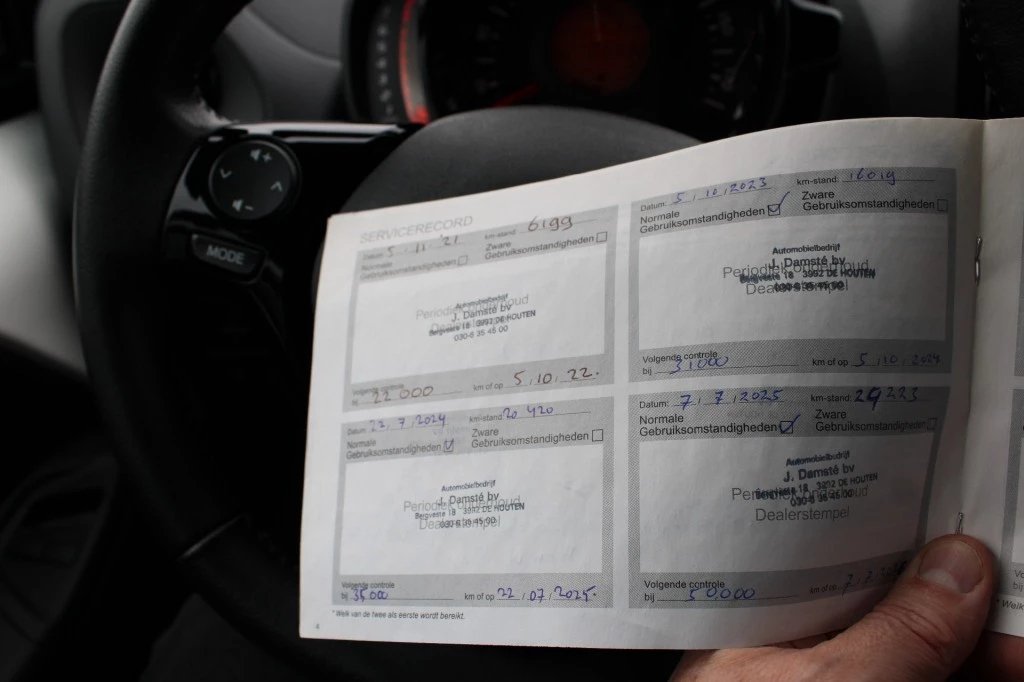 MODE
SERVICERECORD
Datum: 5 11 '21 km-stand: 6199
Normale Gebruiksomstandigheden
Zware Gebruiksomstandigheden
Periodiek onderhoud
Dealerstempel
Automobielbedrijf
J. Damsté bv
Bergveste 18 3992 DE HOUTEN
030-6 35 45 00
Volgende controle
bij 22 000 km of op 5.10.22.
Datum: 5.10.2023 km-stand: 16019
Normale Gebruiksomstandigheden
Zware Gebruiksomstandigheden
Periodiek onderhoud
Dealerstempel
Automobielbedrijf
J. Damsté bv
Bergveste 18 3992 DE HOUTEN
030-6 35 45 00
Volgende controle
bij 31000 km of op 5.10.2024
Datum: 22.7.2024 km-stand: 20 420
Normale Gebruiksomstandigheden
Zware Gebruiksomstandigheden
Periodiek onderhoud
Dealerstempel
Automobielbedrijf
J. Damsté bv
Bergveste 18 3992 DE HOUTEN
030-6 35 45 00
Volgende controle
bij 35000 km of op 22/07/2025.
Datum: 7.7.2025 km-stand: 29223
Normale Gebruiksomstandigheden
Zware Gebruiksomstandigheden
Periodiek onderhoud
Dealerstempel
Automobielbedrijf
J. Damsté bv
Bergveste 18 3992 DE HOUTEN
030-6 35 45 00
Volgende controle
bij 50,000 km of op 7.7
* Welk van de twee als eerste wordt bereikt.